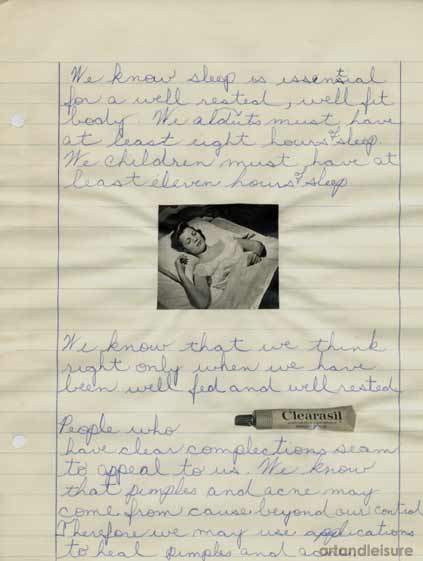 We know sleep is issential
for a well rested, well fit
body. We alduts must have
at least eight hours of sleep.
We children must have at
least eleven hours of sleep
We know that we think
right only when we have
been well fed and well rested
Clearasil
People who
have clear complections seam
to appeal to us. We know
that pimples and acne may
come from cause beyond our control
Therefore we may use applications
to heal pimples and
artandleisure